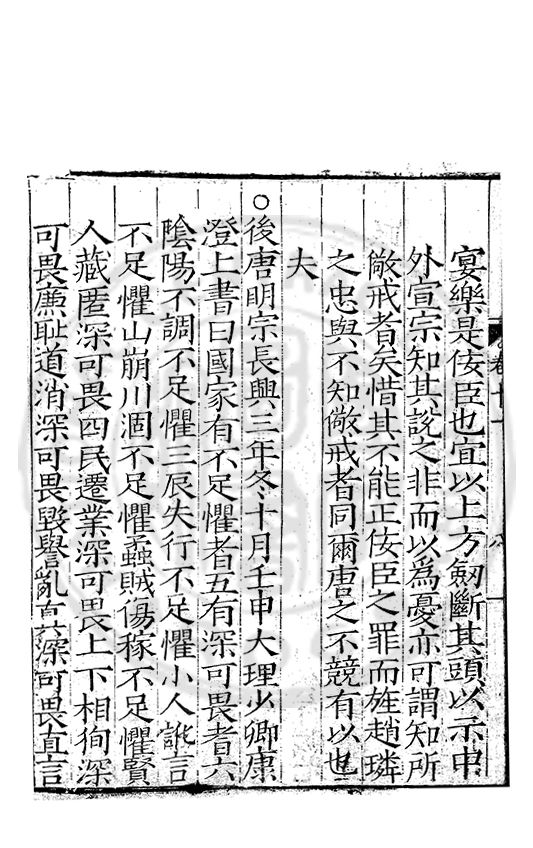 宴樂是佞臣也宜以上方劔斷其頭以示中
外宣宗知其說之非而以為憂亦可謂知所
儆戒者矣惜其不能正佞臣之罪而旌趙璘
之忠與不知儆戒者同爾唐之不競有以也
夫
○後唐明宗長興三年冬十月壬申大理少卿康
澄上書曰國家有不足懼者五有深可畏者六
陰陽不調不足懼三辰失行不足懼小人訛言
不足懼山崩川涸不足懼蟊賊傷稼不足懼賢
人藏匿深可畏四民遷業深可畏上下相徇深
可畏廉恥道消深可畏毀譽亂真深可畏直言